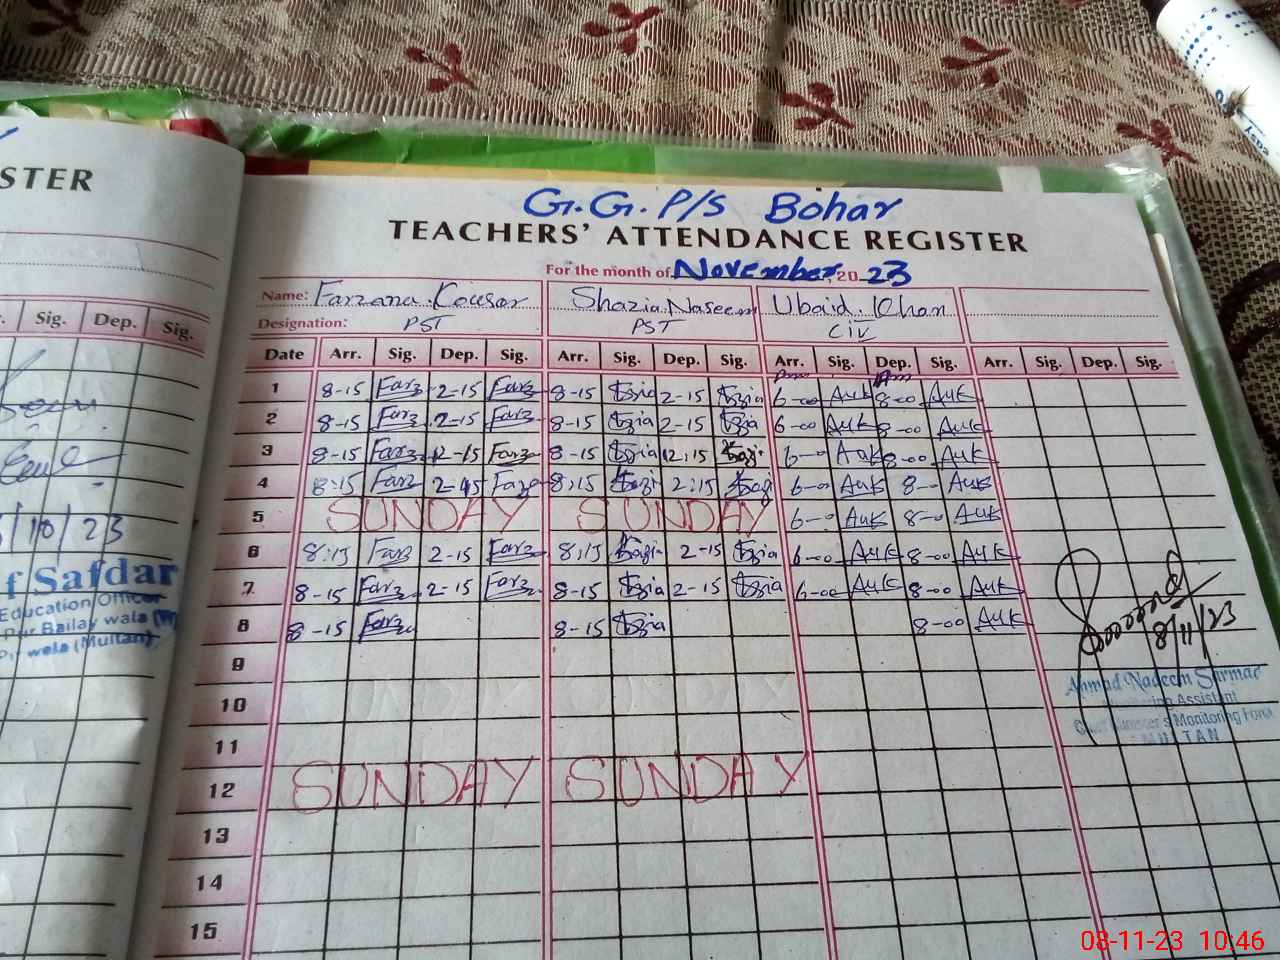 STER
G.G.P/S Bohar
TEACHERS' ATTENDANCE REGISTER
For the month of November, 20 23
Name: Farzana Kousar Shazia Naseem Ubaid Khan
Designation: PST PST
Sig. Dep. Sig.
Date Arr. Sig. Dep. Sig. Arr. Sig. Dep. Sig. Arr. Sig. Dep. Sig. Arr. Sig. Dep. Sig.
1 8-15 Farz 2-15 Farz 8-15 2-15 6-00 AUK 8-00 AUK
2 8-15 Farz 2-15 Farz 8-15 2-15 6-00 AUK 8-00 AUK
3 8-15 Farz 12-15 Farz 8-15 12:15 6-0 AUK 8-00 AUK
4 8:15 Farz 2-15 Farz 8:15 2:15 6-00 AUK 8-0 AUK
5 SUNDAY SUNDAY 6-0 AUK 8-0 AUK
6 8:15 Farz 2-15 Farz 8:15 2-15 6-00 AUK 8-00 AUK
7 8-15 Farz 2-15 Farz 8-15 2-15 6-00 AUK 8-00 AUK
8 8-15 Farz 8-15 8-00 AUK
9
10
11
12 SUNDAY SUNDAY
13
14
15
/10/23
f Safdar
Education Officer
Pur Bailay wala
wala (Multan)
8/11/23
Ahmad Nadeem Sarmad
Monitoring Assistant
Chief Minister's Monitoring Force
MULTAN
08-11-23 10:46